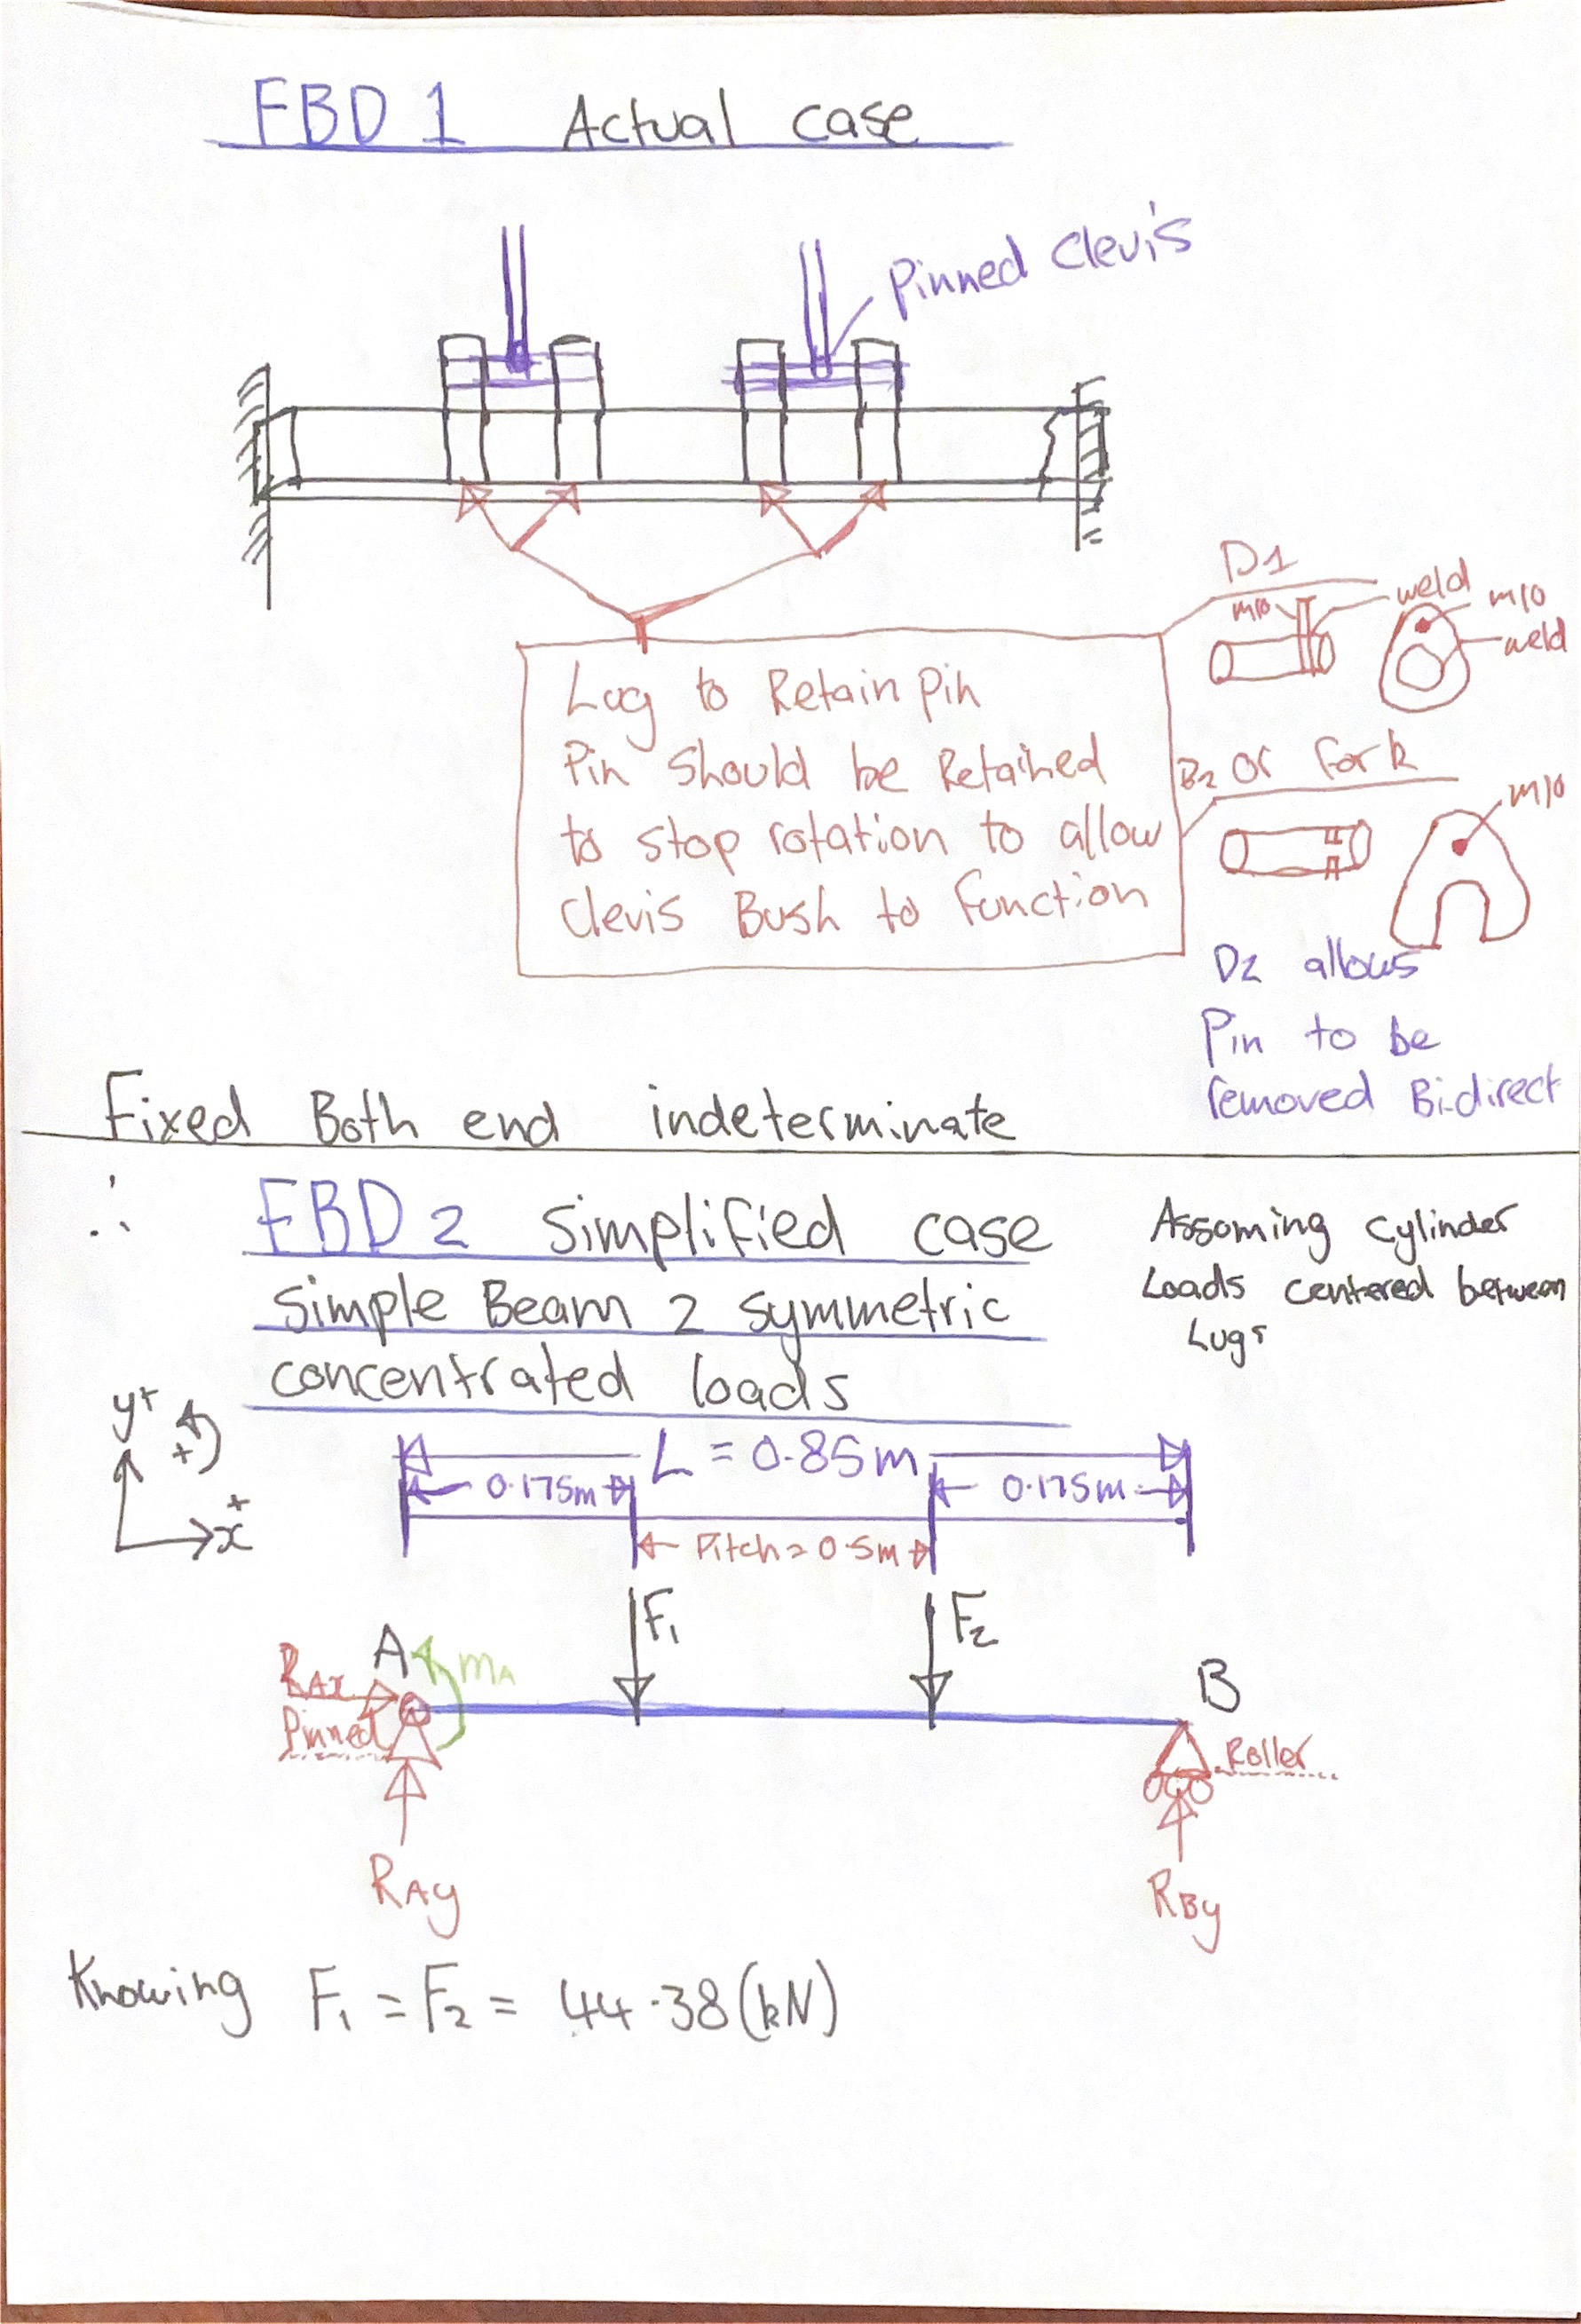 FBD 1 Actual case
Pinned Clevis
D1
m10
weld
m10
weld
Lug to Retain Pin
Pin should be Retained
to stop rotation to allow
Clevis Bush to function
D2 or Fork
m10
D2 allows
Pin to be
removed Bi-direct
Fixed Both end indeterminate
∴ FBD 2 Simplified case
Simple Beam 2 symmetric
concentrated loads
Assoming cylinder
Loads centered between
Lugs
y+
+
+
x
L = 0.85m
0.175m
0.175m
Pitch = 0.5m
F1
F2
A
mA
RAx
Pinned
B
Roller
RAy
RBy
Knowing F1 = F2 = 44.38 (kN)